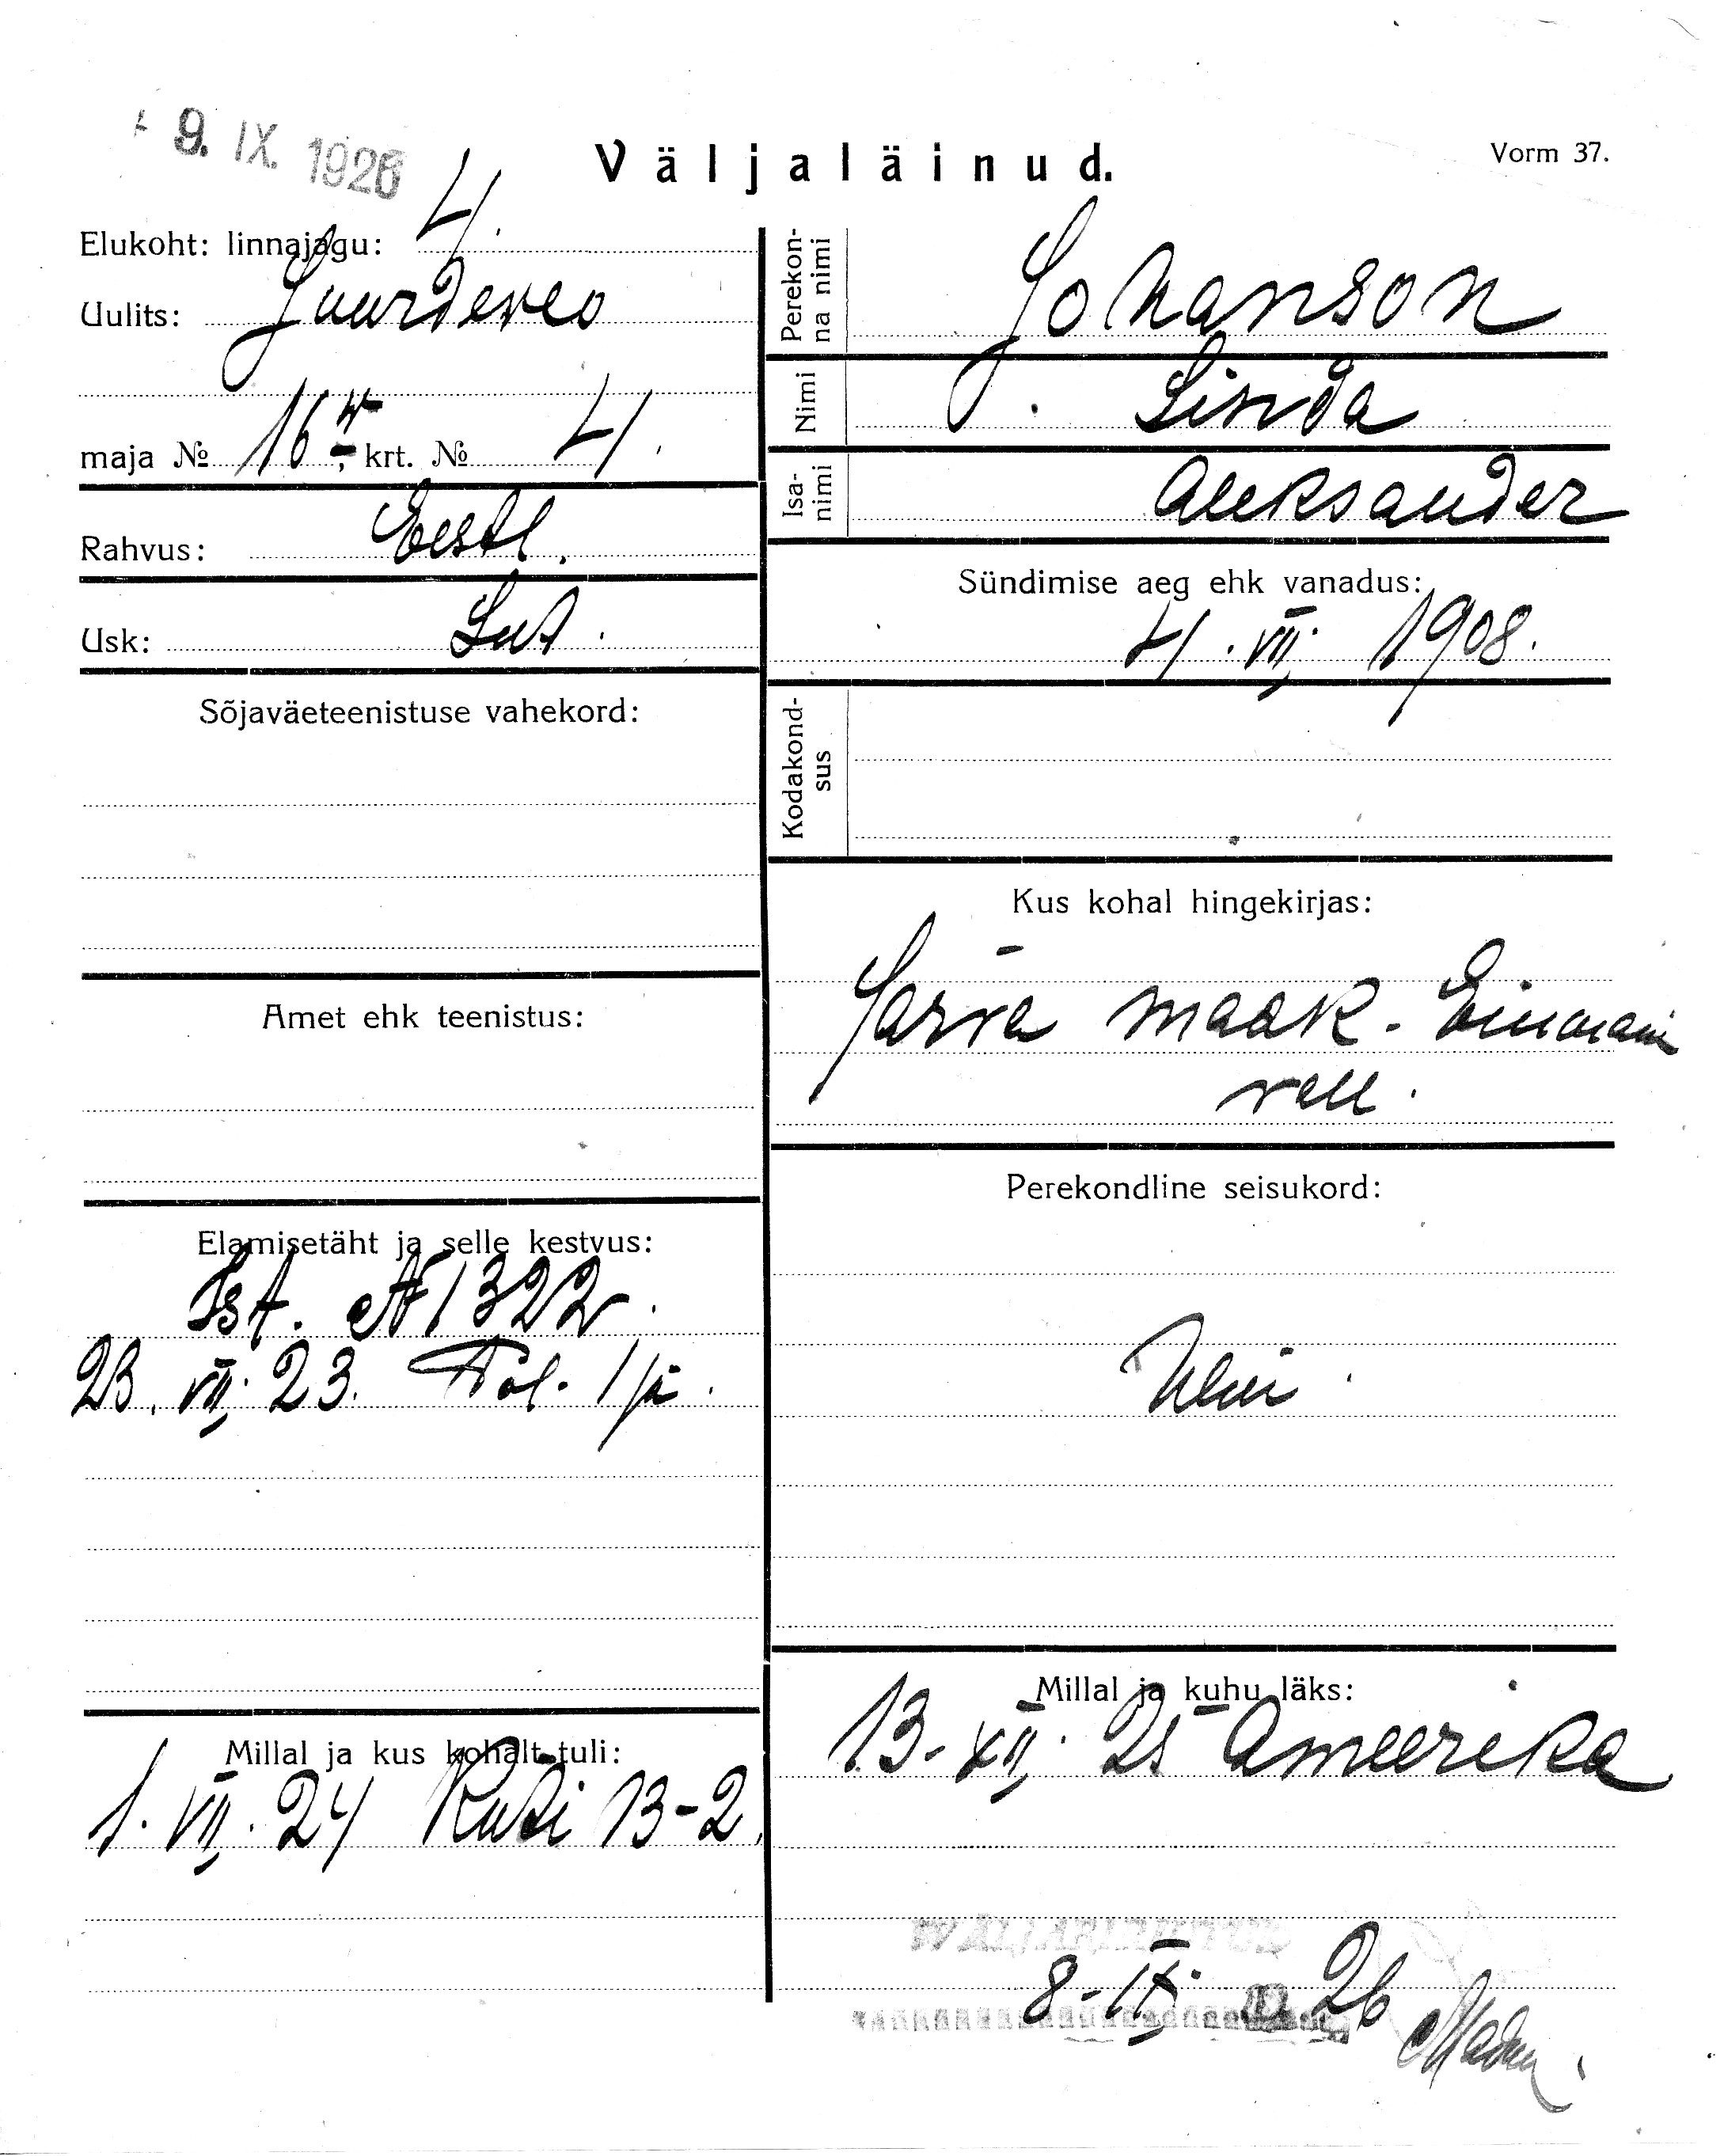 9. IX. 1926
Väljaläinud.
Vorm 37.
Elukoht: linnajagu: 4.
Uulits: Juurdeveo
maja № 16 krt. № 4.
Rahvus: Eestl.
Usk: Lut.
Sõjaväeteenistuse vahekord:
Amet ehk teenistus:
Elamisetäht ja selle kestvus:
Ist. № 1322.
23. VII. 23. Pol. 1 j.
Millal ja kus kohalt tuli:
1. VII. 24 Kuti 13-2.
Perekonna nimi Johanson
Nimi Linda
Isanimi Aleksander
Sündimise aeg ehk vanadus:
4. VII. 1908.
Kodakondsus
Kus kohal hingekirjas:
Järva maak. Einmani
vall.
Perekondline seisukord:
Millal ja kuhu läks:
13-XII. 25 Ameerika
8-IX. 26